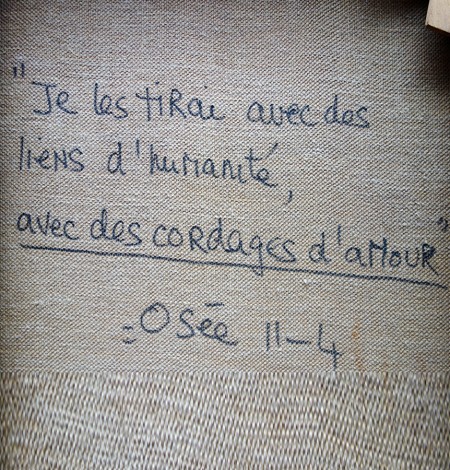 "Je les tirai avec des
liens d'humanité,
avec des cordages d'amour"
= Osée 11-4